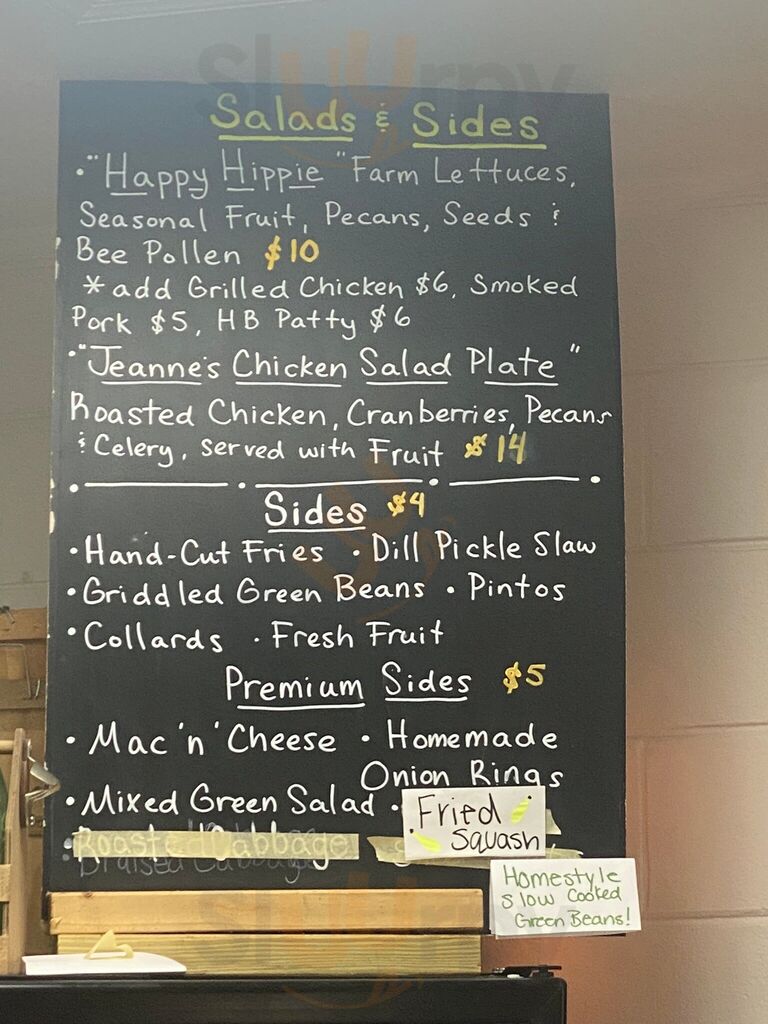 Slurpy
Salads & Sides
• "Happy Hippie" Farm Lettuces,
Seasonal Fruit, Pecans, Seeds &
Bee Pollen $10
* add Grilled Chicken $6, Smoked
Pork $5, HB Patty $6
• "Jeanne's Chicken Salad Plate"
Roasted Chicken, Cranberries, Pecans
& Celery, served with Fruit $14
Sides $4
• Hand-Cut Fries • Dill Pickle Slaw
• Griddled Green Beans • Pintos
• Collards • Fresh Fruit
Premium Sides $5
• Mac 'n' Cheese • Homemade
Onion Rings
• Mixed Green Salad • Fried
Squash
• Roasted Cabbage
Braised Cabbage
Homestyle
Slow Cooked
Green Beans!